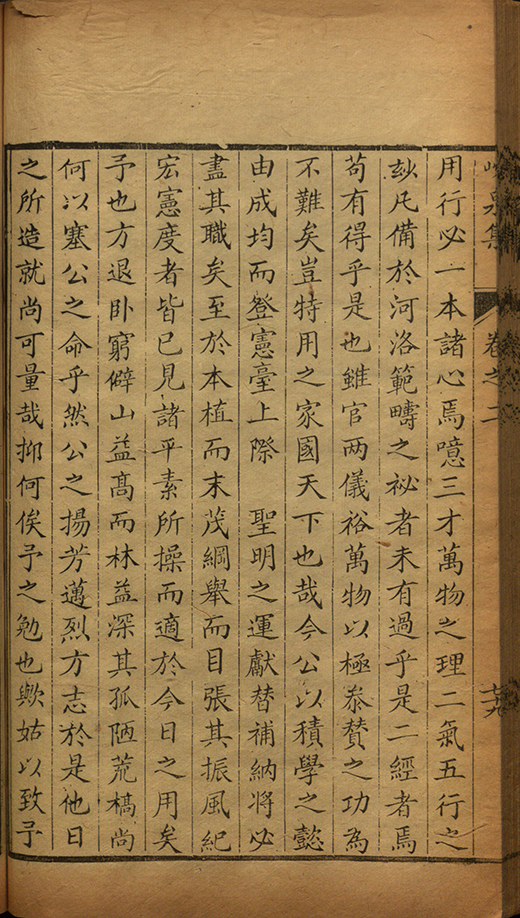 泉集
卷之二
用行必一本諸心焉噫三才萬物之理二氣五行之
玅凡備於河洛範疇之祕者未有過乎是二經者焉
苟有得乎是也雖官两儀裕萬物以極叅賛之功為
不難矣豈特用之家國天下也哉今公以積學之懿
由成均而登憲臺上際　聖明之運獻替補納將必
盡其職矣至於本植而末茂綱舉而目張其振風紀
宏憲度者皆已見諸乎素所操而適於今日之用矣
予也方退卧窮僻山益髙而林益深其孤陋荒槁尚
何以塞公之命乎然公之揚芳邁烈方志於是他日
之所造就尚可量哉抑何俟予之勉也歟姑以致予